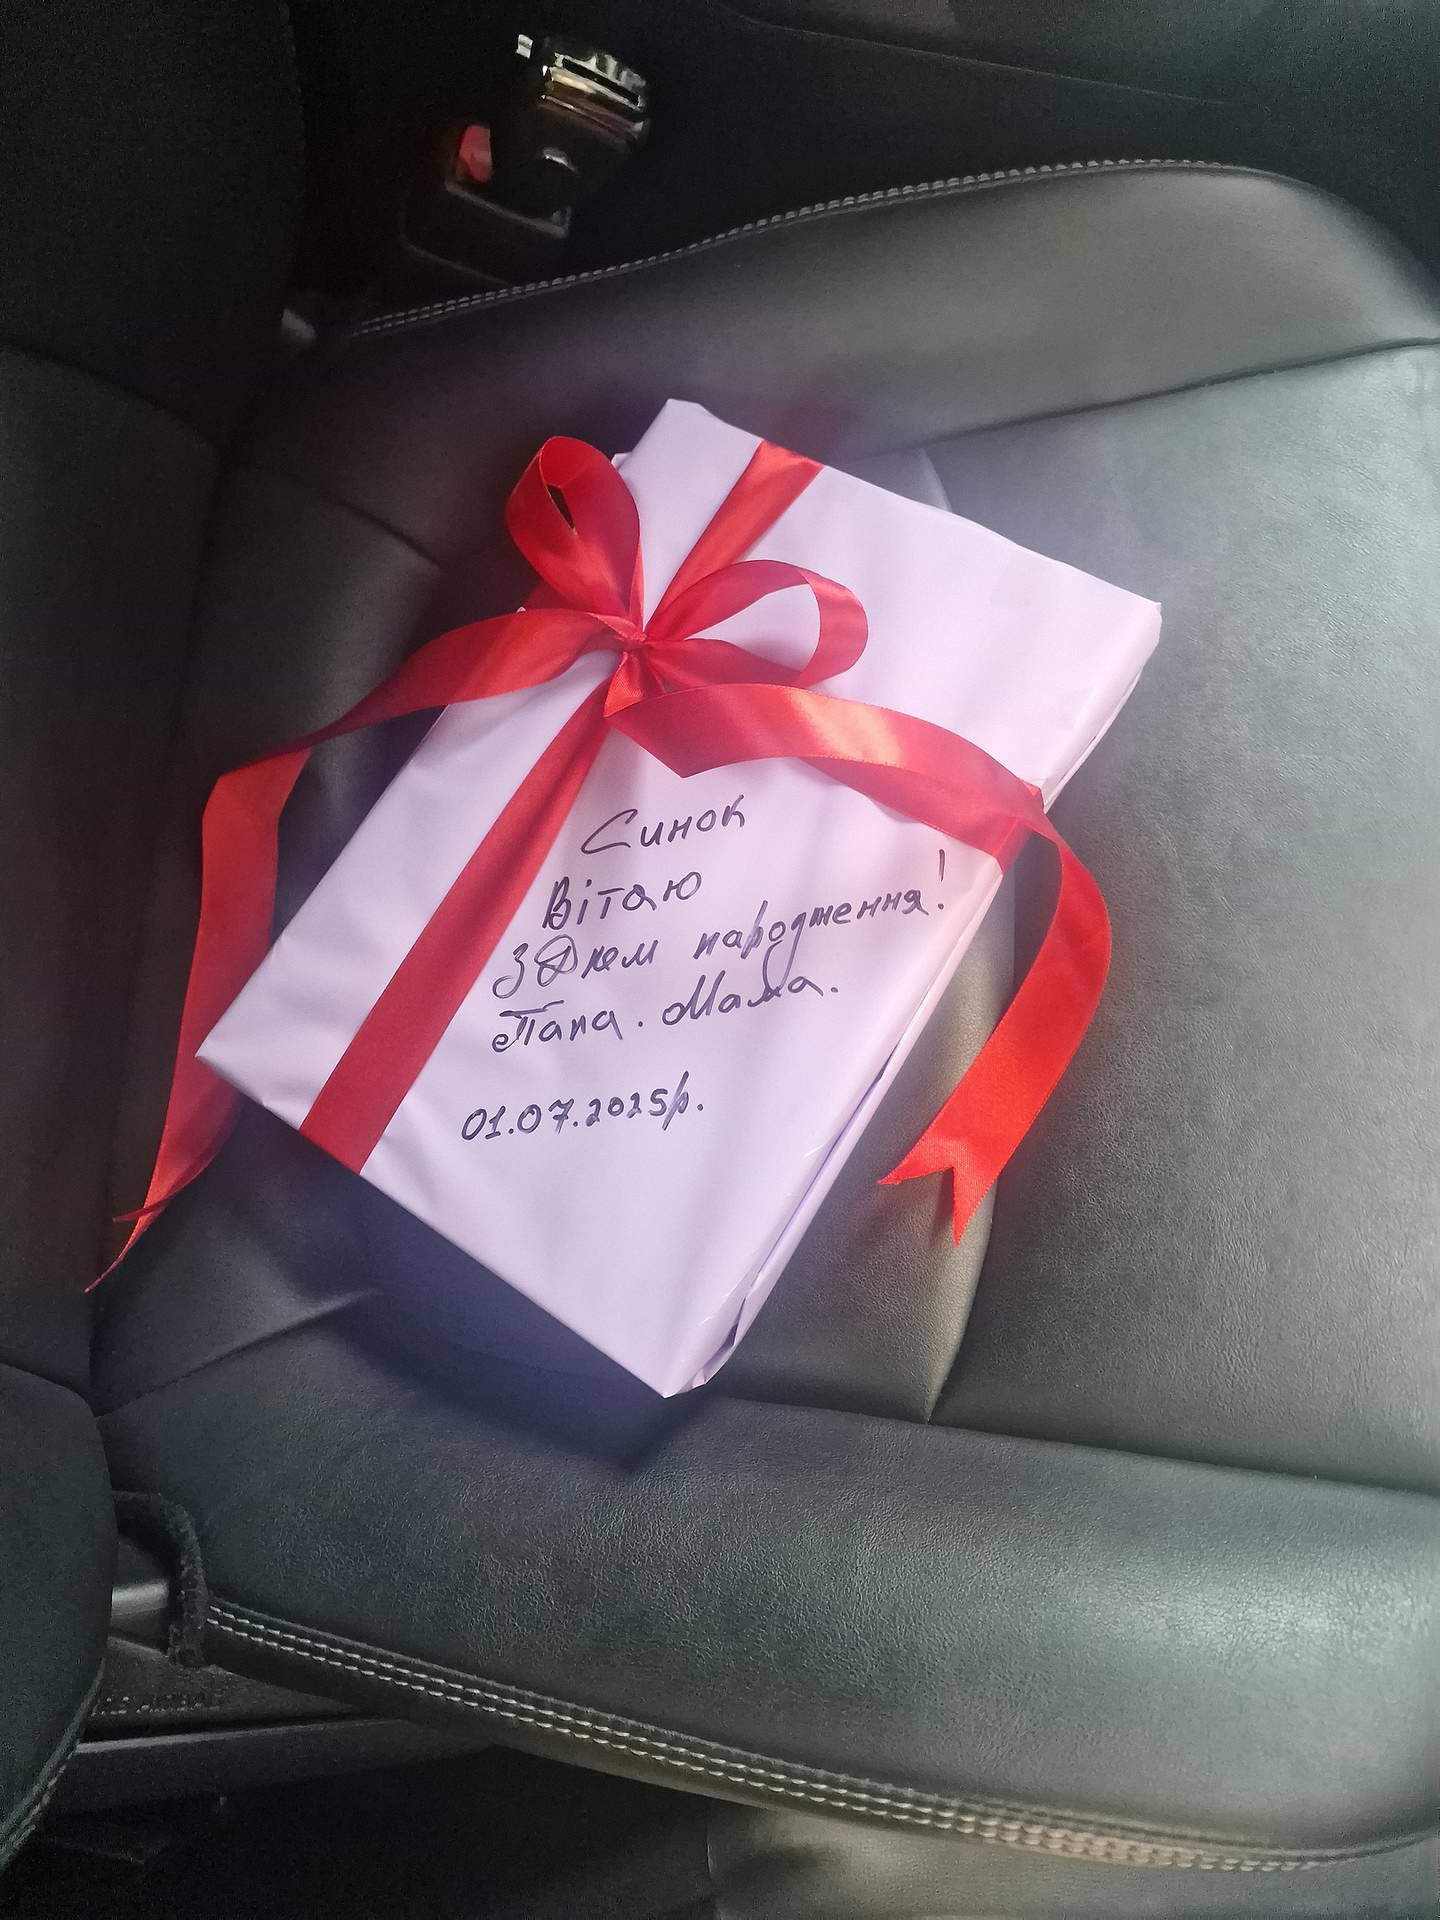 Синок
Вітаю
З Днем народження!
Папа. Мама.
01.07.2025р.